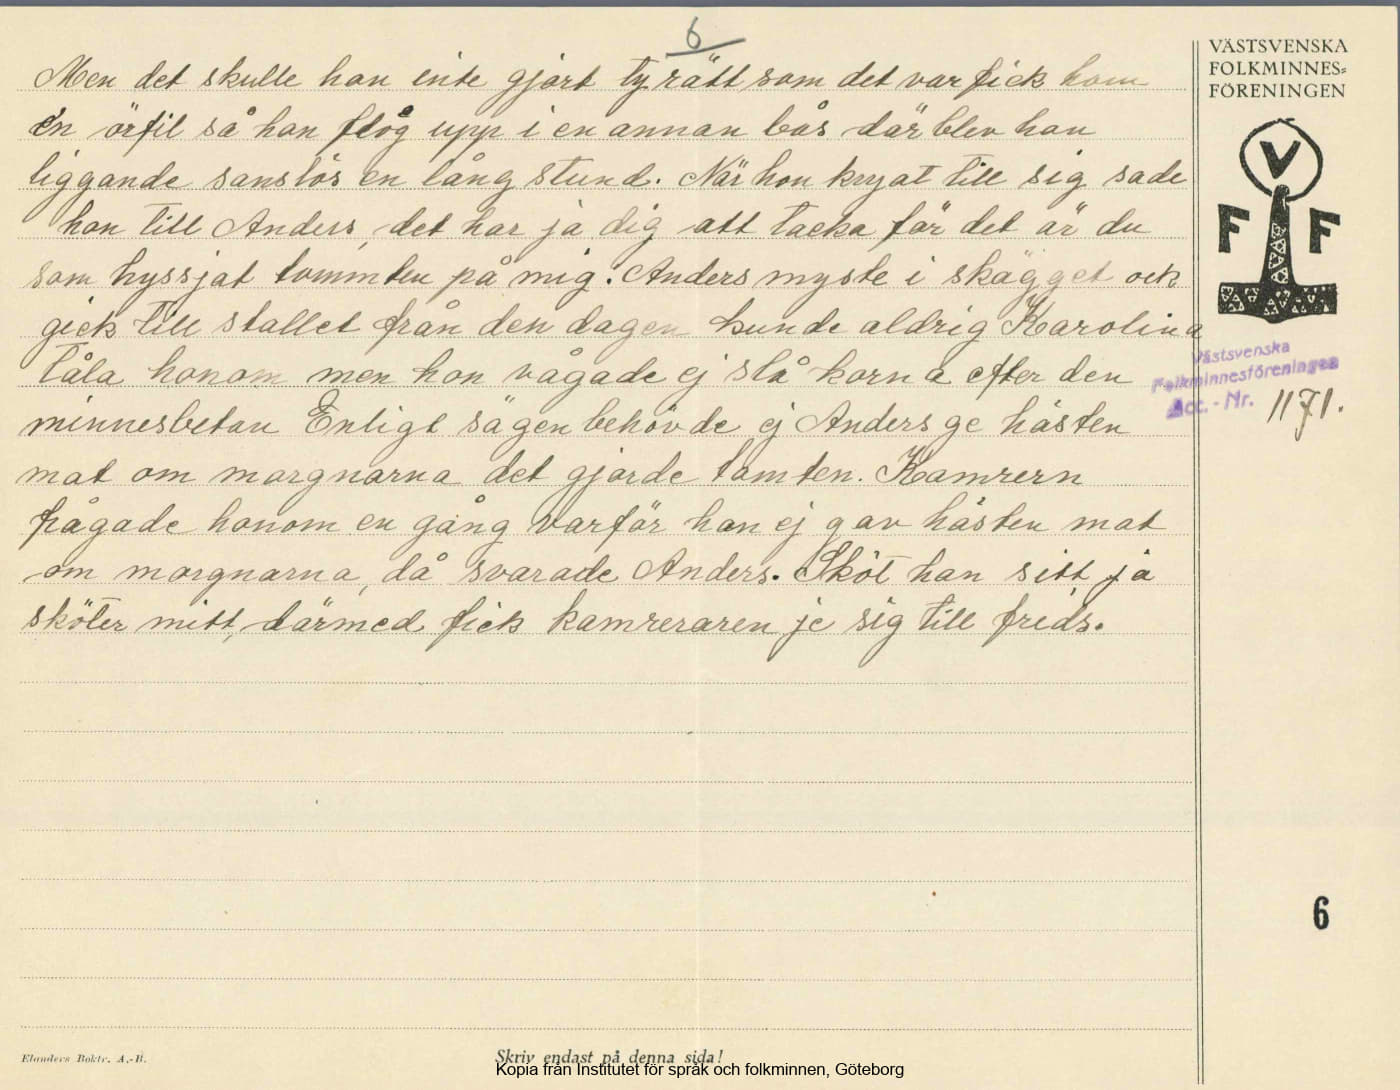 6
Men det skulle hon inte gjort ty rätt som det var fick hom
én örfil så hon flög upp i en annan bås där blev hon
liggande sanslös en lång stund. När hon kryat till sig sade
hon till Anders, det har ja dig att tacka för det är du
som hyssjat tommten på mig. Anders myste i skägget ock
gick till stallet från den dagen kunde aldrig Karolina
tåla honom men hon vågade ej slå korna efter den
minnesbetan Enligt sägen behövde ej Anders ge hästen
mat om morgnarna det gjorde tomten. Kamrern
frågade honom en gång varför han ej gav hästen mat
om morgnarna, då svarade Anders. Sköt han sitt ja
sköter mitt, därmed fick kamreraren je sig till freds.
VÄSTSVENSKA
FOLKMINNES=
FÖRENINGEN
V
F F
Västsvenska
Folkminnesföreningen
Acc. - Nr. 1171.
6
Elanders Boktr. A.-B.
Skriv endast på denna sida!
Kopia från Institutet för språk och folkminnen, Göteborg